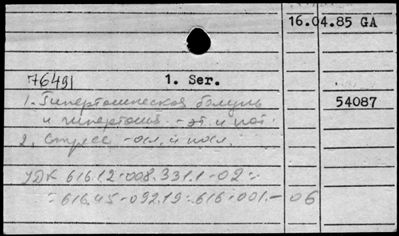 16.04.85 GA
76491 1. Ser.
1. Гипертоническая болезнь 54087
и гипертония - эт. и пат.
2. Стресс - осл. и посл.
УДК 616.12-008.331.1-02:
:616.45-092.19:616-001.-06